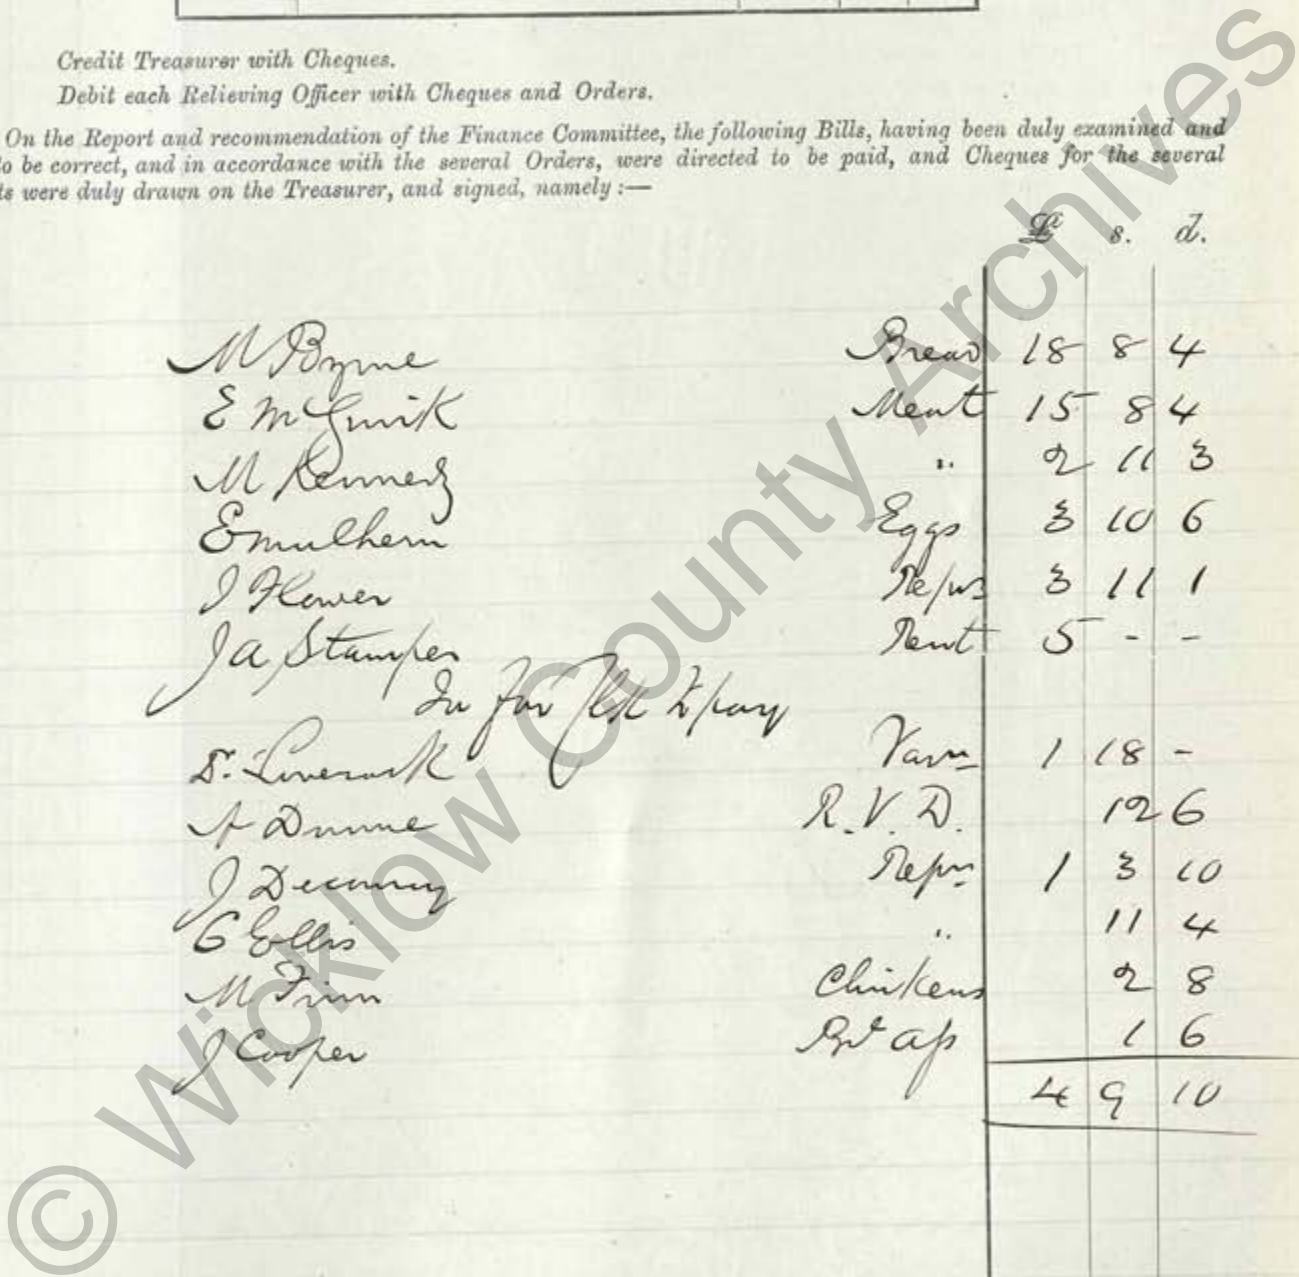 Credit Treasurer with Cheques.
Debit each Relieving Officer with Cheques and Orders.
On the Report and recommendation of the Finance Committee, the following Bills, having been duly examined and
o be correct, and in accordance with the several Orders, were directed to be paid, and Cheques for the several
ts were duly drawn on the Treasurer, and signed, namely :—
£ s. d.
M Byrne Bread 18 8 4
E McGuirk Meat 15 8 4
M Kennedy " 2 11 3
E Mulhern Eggs 3 10 6
J Flower Reprs 3 11 1
J A Stamper Rent 5 - -
In for
D. Loverock 1 18 -
A Dunne R.V.D. 12 6
J Decourcy Reprs 1 3 10
G Ellis " 11 4
M Finn Chickens 2 8
J Cooper 1 6
4 9 10
© Wicklow County Archives